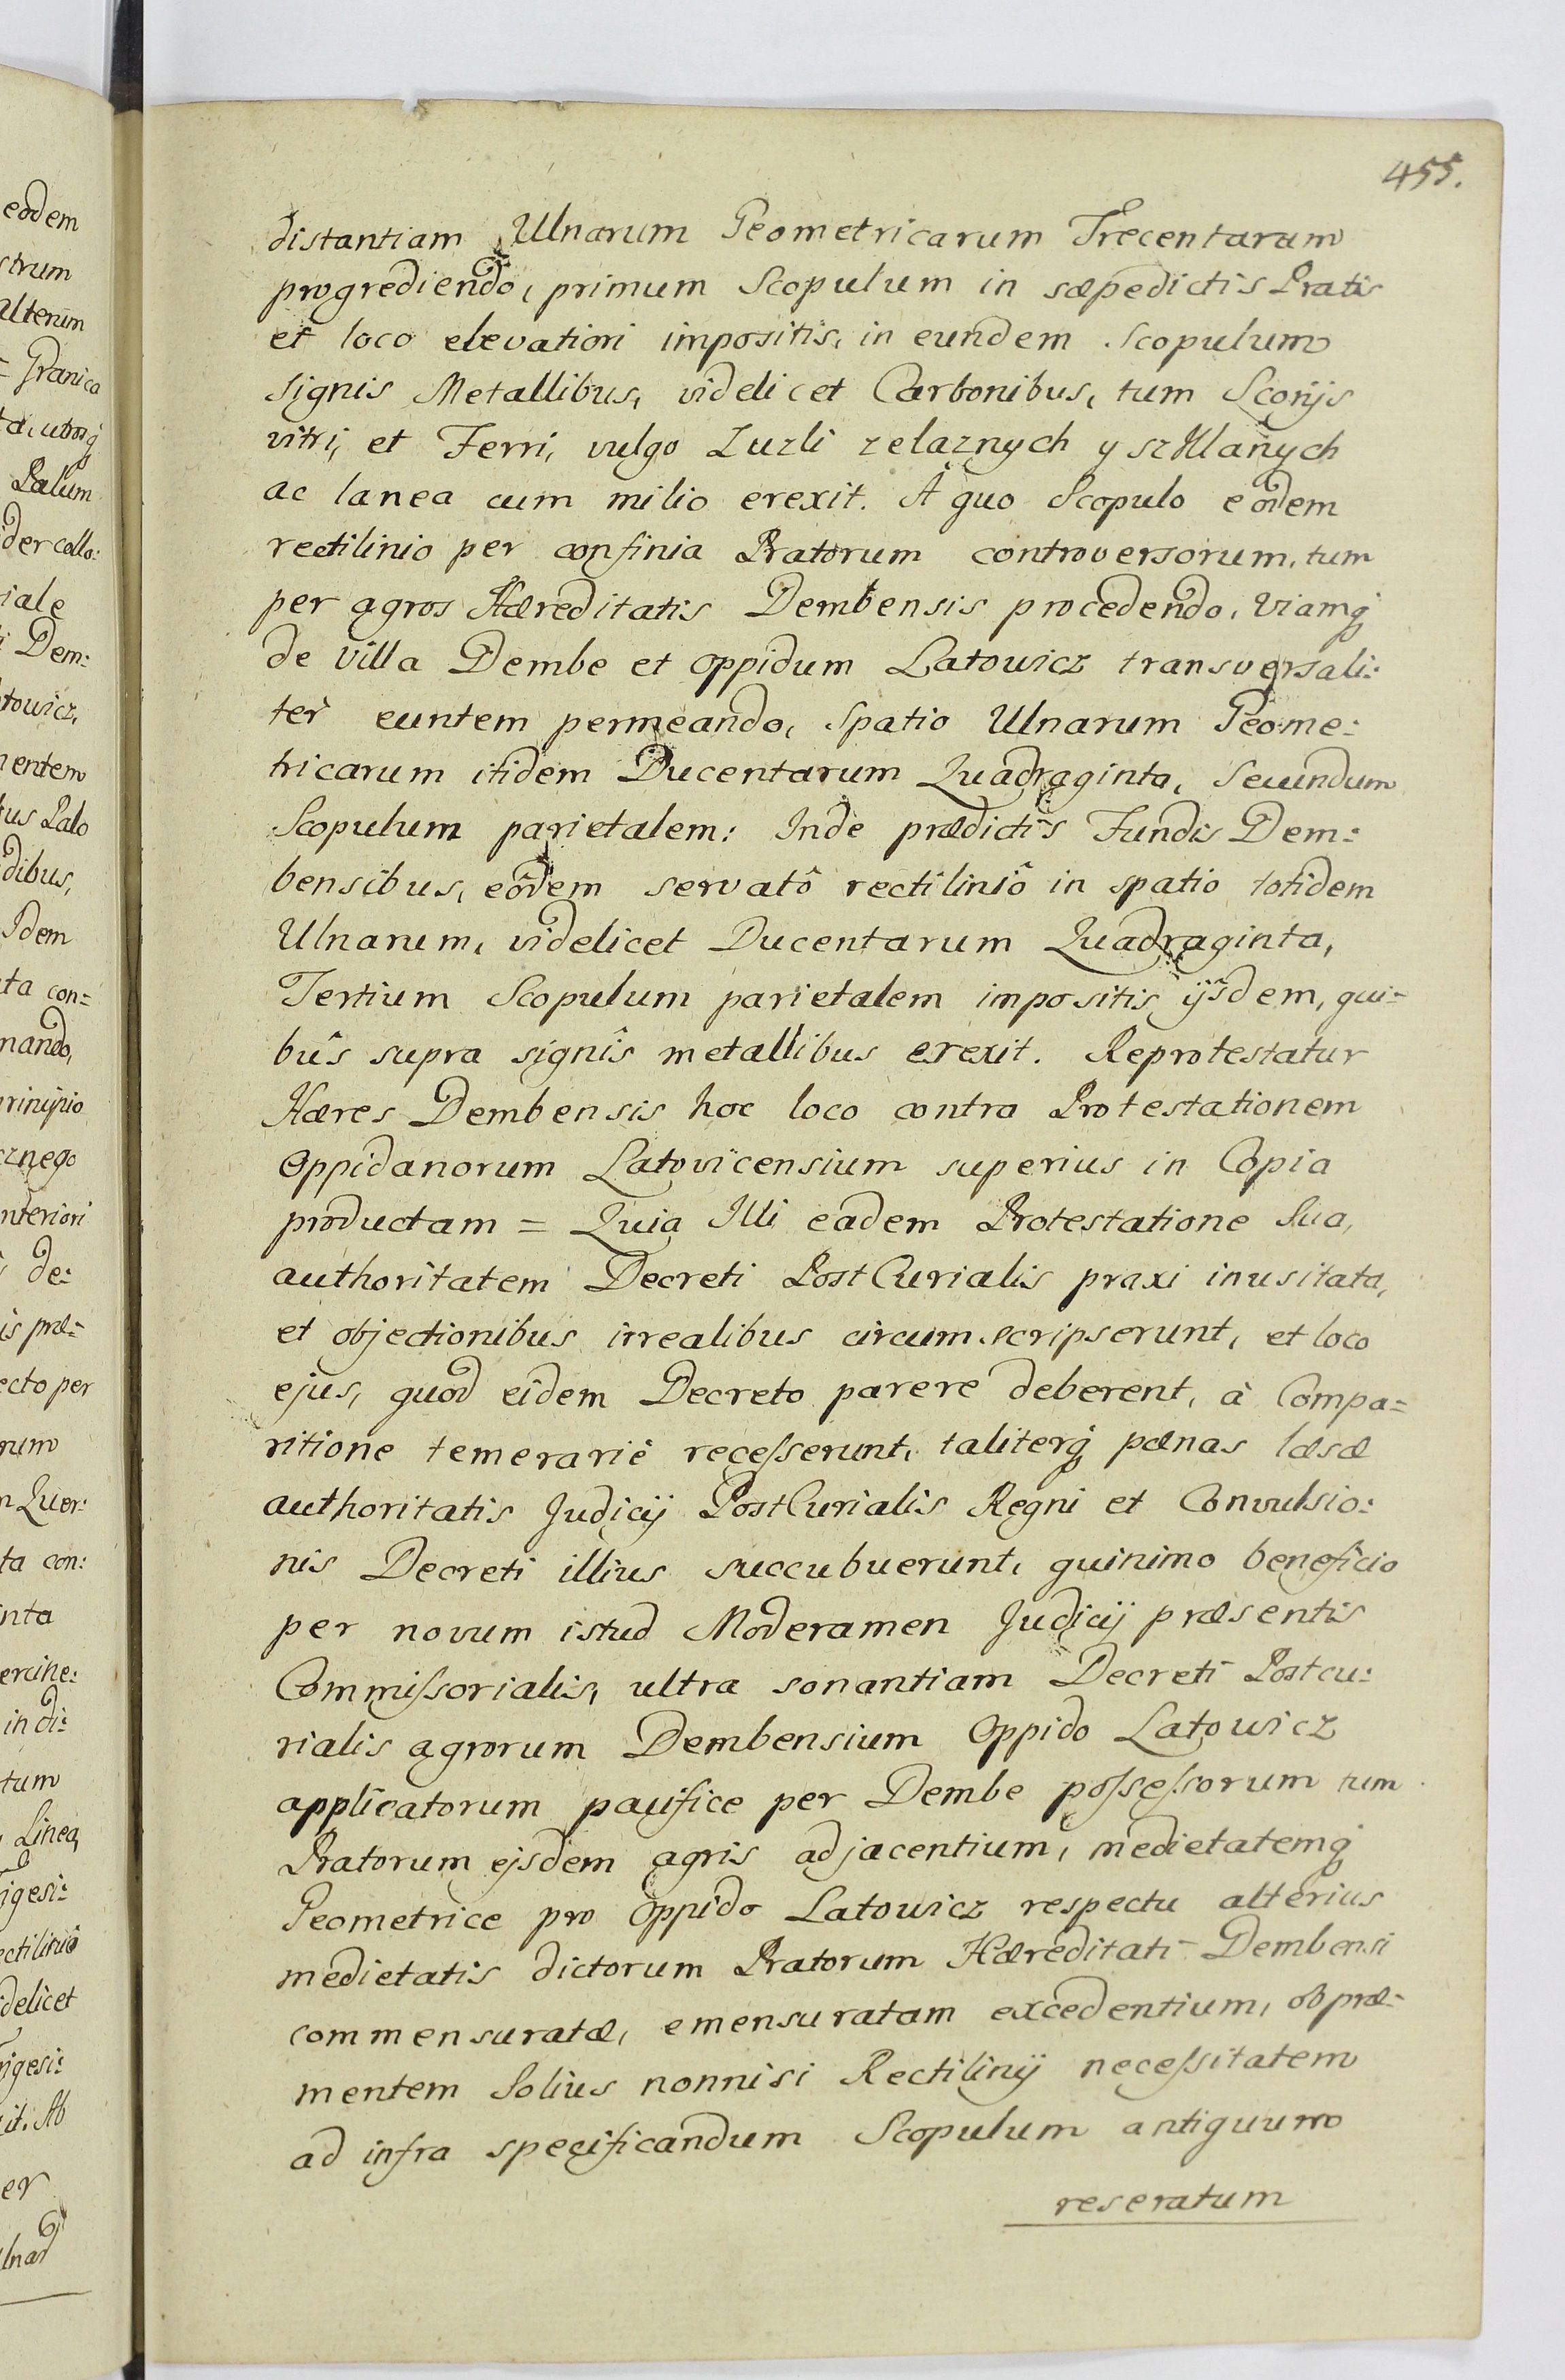 455.
distantiam Ulnarum Geometricarum Trecentarum
progrediendo, primum Scopulum in sæpedictis Pratis
et loco elevatiori impositis, in eundem Scopulum
signis Metallibus, videlicet Carbonibus, tum Scorijs
vitri, et Ferri, vulgo Zuzli zelaznych y szklanych
ac lanea cum milio erexit. A quo Scopulo eodem
rectilinio per confinia Pratorum controversorum, tum
per agros Hæreditatis Dembensis procedendo, Viamq
de Villa Dembe et oppidum Latowicz transversali:
ter euntem permeando, Spatio Ulnarum Geome:
tricarum itidem Ducentarum Quadraginta, Secundum
Scopulum parietalem: Inde prædictis Fundis Dem:
bensibus, eôdem servatô rectiliniô in spatio totidem
Ulnarum, videlicet Ducentarum Quadraginta,
Tertium Scopulum parietalem impositis ijsdem, qui=
bus supra signis metallibus erexit. Reprotestatur
Hæres Dembensis hoc loco contra Protestationem
Oppidanorum Latovicensium superius in Copia
productam = Quia Illi eadem Protestatione Sua,
authoritatem Decreti PostCurialis praxi inusitata,
et objectionibus irrealibus circumscripserunt, et loco
ejus, quod eidem Decreto parere deberent, à Compa=
ritione temerarie recesserunt, taliterq pænas læsæ
authoritatis Judicij PostCurialis Regni et Convulsio:
nis Decreti illius succubuerunt, quinimo beneficio
per novum istud Moderamen Judicij præsentis
Commissorialis, ultra sonantiam Decreti Postcu:
rialis agrorum Dembensium Oppido Latowicz
applicatorum pacifice per Dembe possessorum tum
Pratorum ejsdem agris adjacentium, medietatemq
Geometrice pro Oppido Latowicz respectu alterius
medietatis dictorum Pratorum Hæreditati Dembensi
commensuratæ, emensuratam excedentium, ob præ=
mentem Solius nonnisi Rectilinij necessitatem
ad infra specificandum Scopulum antiquum
reseratum